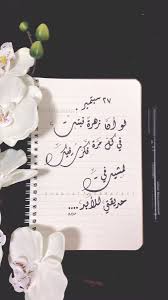 ٢٧ سبتمبر .
لو أن زهرة نبتت
في كل مرة فكرت فيك
لمشيت في
حديقتي للأبد ....